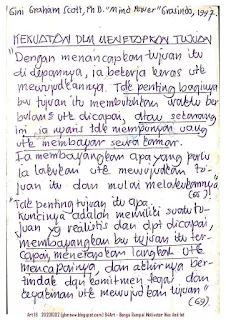 "Gini Graham Scott, Ph.D. "Mind Power" Grasindo, 1997.
KEKUATAN DLM MENETAPKAN TUJUAN
"Dengan menancapkan tujuan itu
di depannya, ia bekerja keras utk
mewujudkannya. Tdk penting baginya
bw tujuan itu membutuhkan waktu ber
bulan² utk dicapai, atau sekarang
ini ia nyaris tdk mempunyai uang
utk membayar sewa kamar.
Ia membayangkan apa yang perlu
Ia lakukan utk mewujudkan tu-
juan itu dan mulai melakukannya"
"Tdk penting tujuan itu apa.
Kuncinya adalah memiliki suatu tu-
juan yg realistis dan dpt dicapai,
membayangkan bw tujuan itu ter-
capai, menetapkan langkah utk
mencapainya, dan akhirnya ber-
tindak dgn komitmen tegas dan
keyakinan utk mewujudkan tujuan"
(69)